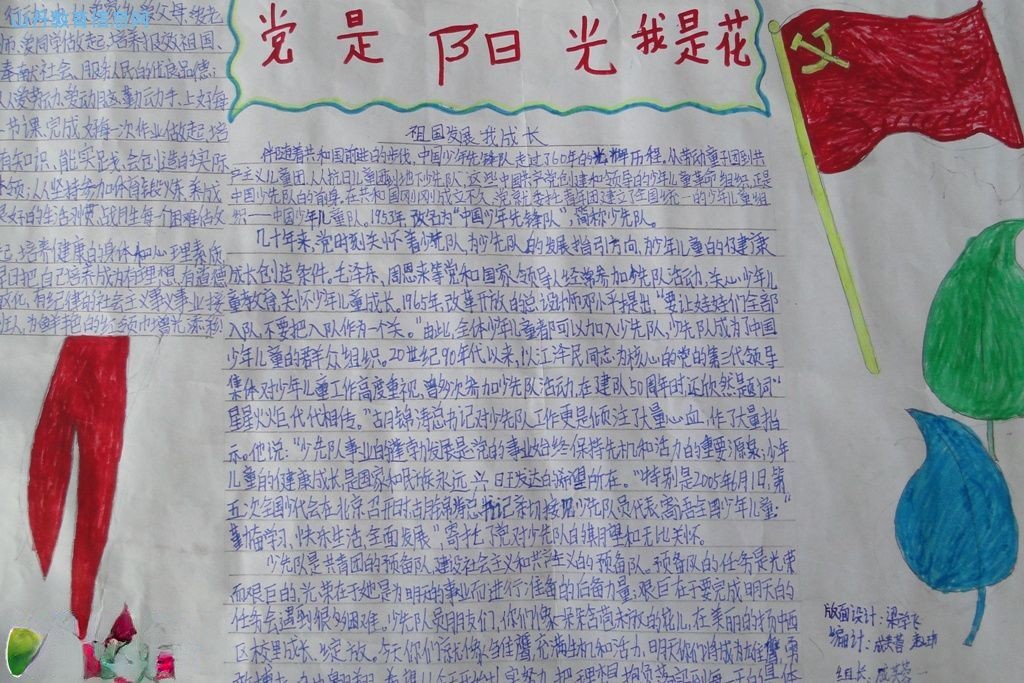 党是阳光我是花
祖国发展 我成长
伴随着共和国前进的步伐,中国少年先锋队走过了60年的光辉历程,从劳动童子团到共
产主义儿童团,从抗日儿童团到地下少先队,这些中国共产党创建和领导的少年儿童革命组织,正是
中国少先队的前身,在共和国刚刚成立不久,党就委托青年团建立了全国统一的少年儿童组
织——中国少年儿童队。1953年,改名为“中国少年先锋队”,简称少先队。
几十年来,党时刻关怀着少先队,为少先队的发展指引方向,为少年儿童的健康
成长创造条件。毛泽东、周恩来等党和国家领导人经常参加少先队活动,关心少年儿
童教育,关怀少年儿童成长。1965年,改革开放的总设计师邓小平提出,“要让娃娃们全部
入队,不要把入队作为一个关。”由此,全体少年儿童都可以加入少先队,少先队成为了中国
少年儿童的群众组织。20世纪90年代以来,以江泽民同志为核心的党的第三代领导
集体对少年儿童工作高度重视,曾多次参加少先队活动,在建队50周年时还欣然题词“
星星火炬代代相传。”胡锦涛总书记对少先队工作更是倾注了大量心血,作了大量指
示。他说:“少先队事业的蓬勃发展是党的事业始终保持生机和活力的重要源泉,少年
儿童的健康成长是国家和民族永远兴旺发达的希望所在。”特别是2005年6月1日,第
五次全国少代会在北京召开时,胡锦涛总书记亲切接见少先队员代表,寄语全国少年儿童:“
勤奋学习,快乐生活,全面发展”,寄托了党对少先队的期望和无比关怀。
少先队是共青团的预备队,建设社会主义和共产主义的预备队。预备队的任务是光荣
而艰巨的,光荣在于她是为明天的事业而进行准备的后备力量;艰巨在于要完成明天的
任务会遇到很多困难。少先队员朋友们,你们像一朵朵含苞未放的花儿,在美丽的
区校里成长、绽放。今天你们就像雏鹰,充满生机和活力,明天你们将成为雄鹰
行动
父母
师、爱同学做起,培养报效祖国、
奉献社会、服务人民的优良品德;
从爱劳动、爱动脑、勤动手、上好每
一节课、完成好每一次作业做起,培
有知识、能实践、会创造的实际
本领;从坚持参加体育锻炼、养成
良好的生活习惯、战胜每一个困难做
起,培养健康的身体和心理素质,
早日把自己培养成为有理想、有道德
文化、有纪律的社会主义事业接
班人,为鲜艳的红领巾增光添彩
版面设计:
编计:
组长: